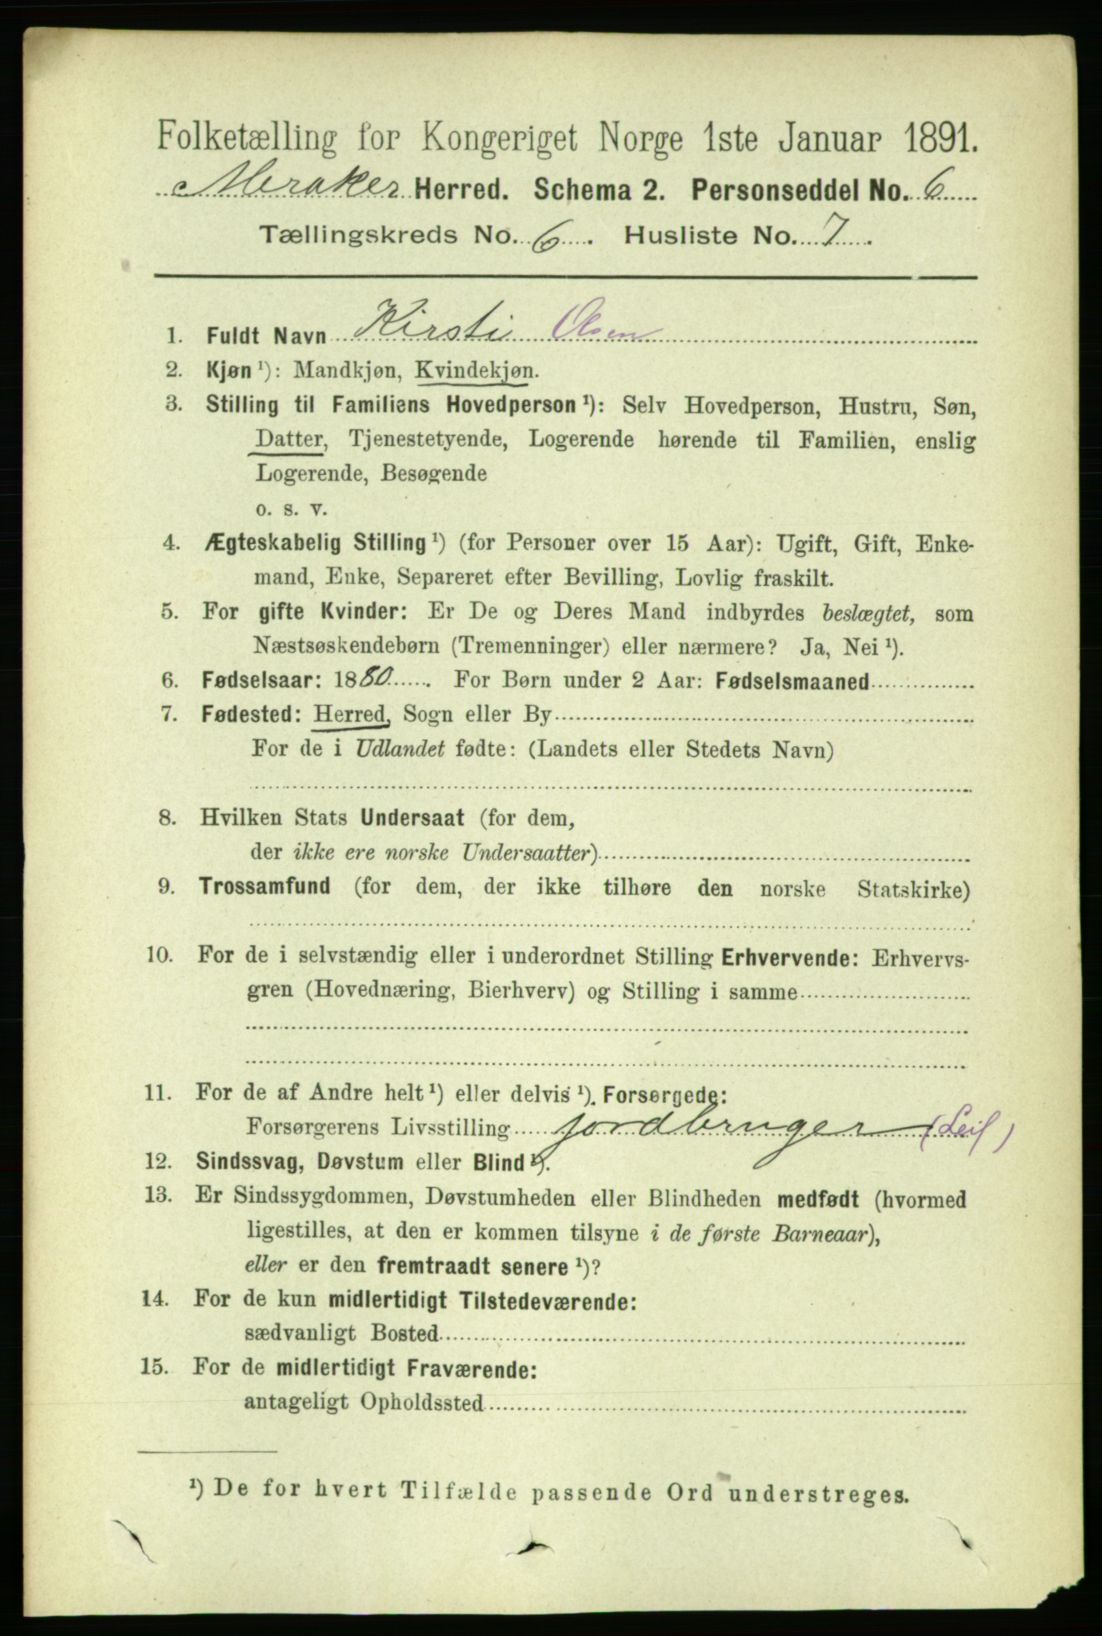 Folketælling for Kongeriget Norge 1ste Januar 1891.
Meraker Herred. Schema 2. Personseddel No. 6
Tællingskreds No. 6. Husliste No. 7.
1. Fuldt Navn Kirsti Olsen
2. Kjøn ¹): Mandkjøn, Kvindekjøn.
3. Stilling til Familiens Hovedperson ¹): Selv Hovedperson, Hustru, Søn,
Datter, Tjenestetyende, Logerende hørende til Familien, enslig
Logerende, Besøgende
o. s. v.
4. Ægteskabelig Stilling ¹) (for Personer over 15 Aar): Ugift, Gift, Enke-
mand, Enke, Separeret efter Bevilling, Lovlig fraskilt.
5. For gifte Kvinder: Er De og Deres Mand indbyrdes beslægtet, som
Næstsøskendebørn (Tremenninger) eller nærmere? Ja, Nei ¹).
6. Fødselsaar: 1880. For Børn under 2 Aar: Fødselsmaaned
7. Fødested: Herred, Sogn eller By
For de i Udlandet fødte: (Landets eller Stedets Navn)
8. Hvilken Stats Undersaat (for dem,
der ikke ere norske Undersaatter)
9. Trossamfund (for dem, der ikke tilhøre den norske Statskirke)
10. For de i selvstændig eller i underordnet Stilling Erhvervende: Erhvervs-
gren (Hovednæring, Bierhverv) og Stilling i samme
11. For de af Andre helt ¹) eller delvis ¹). Forsørgede:
Forsørgerens Livsstilling jordbruger (Leil)
12. Sindssvag, Døvstum eller Blind ¹).
13. Er Sindssygdommen, Døvstumheden eller Blindheden medfødt (hvormed
ligestilles, at den er kommen tilsyne i de første Barneaar),
eller er den fremtraadt senere ¹)?
14. For de kun midlertidigt Tilstedeværende:
sædvanligt Bosted
15. For de midlertidigt Fraværende:
antageligt Opholdssted
¹) De for hvert Tilfælde passende Ord understreges.